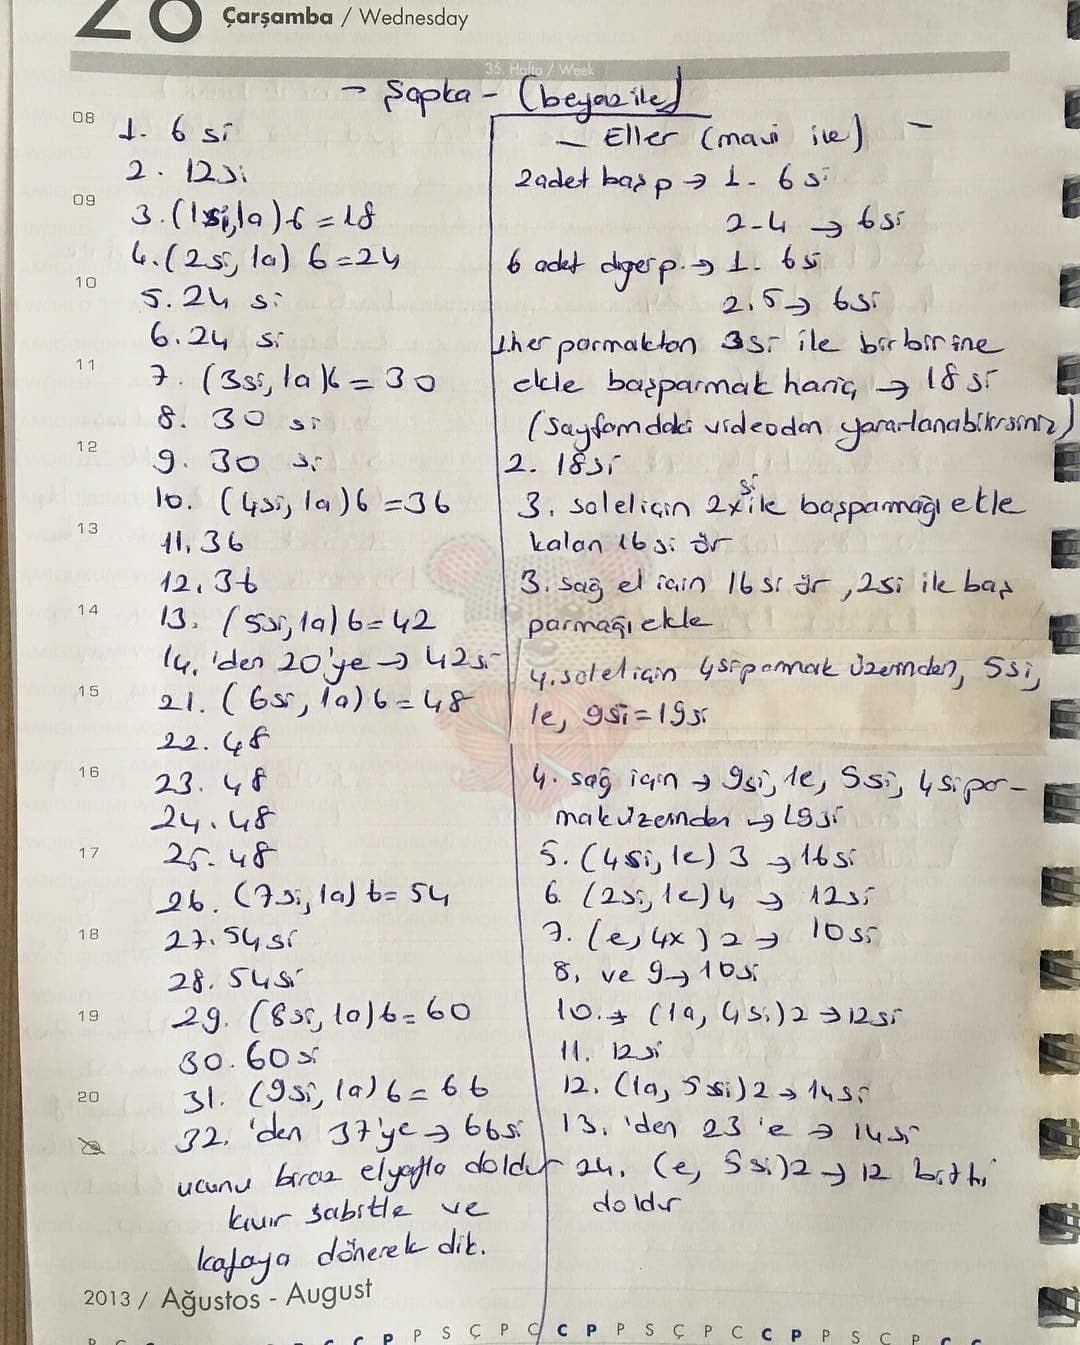 28 Çarşamba / Wednesday
35. Hafta / Week
- Şapka - (beyaz ile)
08
1. 6 si
2. 12si
09
3. (1si,1a) 6 = 18
4. (2si, 1a) 6 = 24
10
5. 24 si
6. 24 si
11
7. (3si, 1a) 6 = 30
8. 30 si
12
9. 30 si
10. (4si, 1a) 6 = 36
13
11. 36
12. 36
14
13. (5si, 1a) 6 = 42
14. 'den 20'ye → 42si
15
21. (6si, 1a) 6 = 48
22. 48
16
23. 48
24. 48
17
25. 48
26. (7si, 1a) 6 = 54
18
27. 54si
28. 54si
19
29. (8si, 1a) 6 = 60
30. 60si
20
31. (9si, 1a) 6 = 66
32. 'den 37'ye → 66si
ucunu biraz elyafla doldur
kıvır sabitle ve
kafaya dönerek dik.
- Eller (mavi ile) -
2adet baş p → 1. 6 si
2-4 → 6si
6 adet diğer p. → 1. 6si
2.5 → 6si
1.her parmaktan 3si ile birbirine
ekle başparmak hariç → 18 si
(sayfamdaki videodan yararlanabilirsiniz)
2. 18si
3. sol el için 2x si ile başparmağı ekle
kalan 16 si ör
3. sağ el için 16 si ör, 2si ile baş
parmağı ekle
4. sol el için 4si parmak üzerinden, 5si,
1e, 9si = 19si
4. sağ için → 9si, 1e, 5si, 4si par-
mak üzerinden → 19si
5. (4si, 1e) 3 → 16si
6. (2si, 1e) 4 → 12si
7. (e, 4x) 2 → 10si
8. ve 9 → 10si
10. → (1a, 4si) 2 → 12si
11. 12si
12. (1a, 5si) 2 → 14si
13. 'den 23'e → 14si
24. (e, 5si) 2 → 12 bitti
doldur
2013 / Ağustos - August
P S Ç P C C P P S Ç P C C P P S Ç P C C
AMIGURUMI WORLD